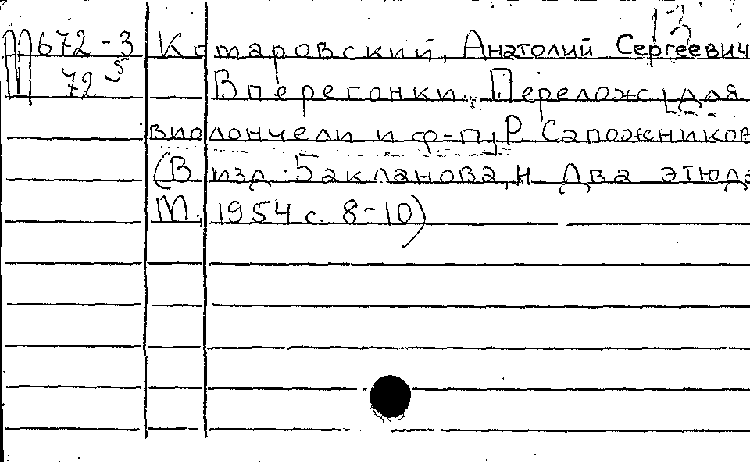 13
М 672-3 Комаровский, Анатолий Сергеевич
72 Вперегонки. Перелож. для
виолончели и ф-п. Р. Сапожников
(В изд: Бакланова, Н. Два этюда
М. 1954 с. 8-10)